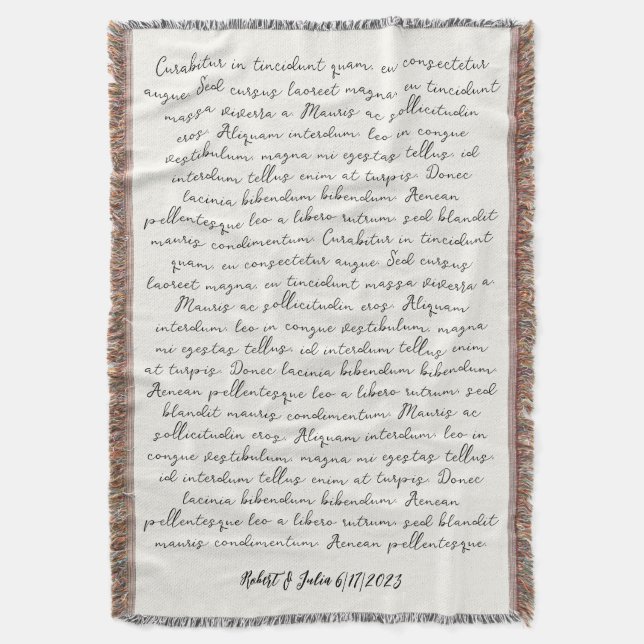 Curabitur in tincidunt quam, eu consectetur
augue. Sed cursus laoreet magna, eu tincidunt
massa viverra a. Mauris ac sollicitudin
eros. Aliquam interdum, leo in congue
vestibulum, magna mi egestas tellus, id
interdum tellus enim at turpis. Donec
lacinia bibendum bibendum. Aenean
pellentesque leo a libero rutrum, sed blandit
mauris condimentum. Curabitur in tincidunt
quam, eu consectetur augue. Sed cursus
laoreet magna, eu tincidunt massa viverra a.
Mauris ac sollicitudin eros. Aliquam
interdum, leo in congue vestibulum, magna
mi egestas tellus, id interdum tellus enim
at turpis. Donec lacinia bibendum bibendum.
Aenean pellentesque leo a libero rutrum, sed
blandit mauris condimentum. Mauris ac
sollicitudin eros. Aliquam interdum, leo in
congue vestibulum, magna mi egestas tellus,
id interdum tellus enim at turpis. Donec
lacinia bibendum bibendum. Aenean
pellentesque leo a libero rutrum, sed blandit
mauris condimentum. Aenean pellentesque.
Robert & Julia 6/17/2023